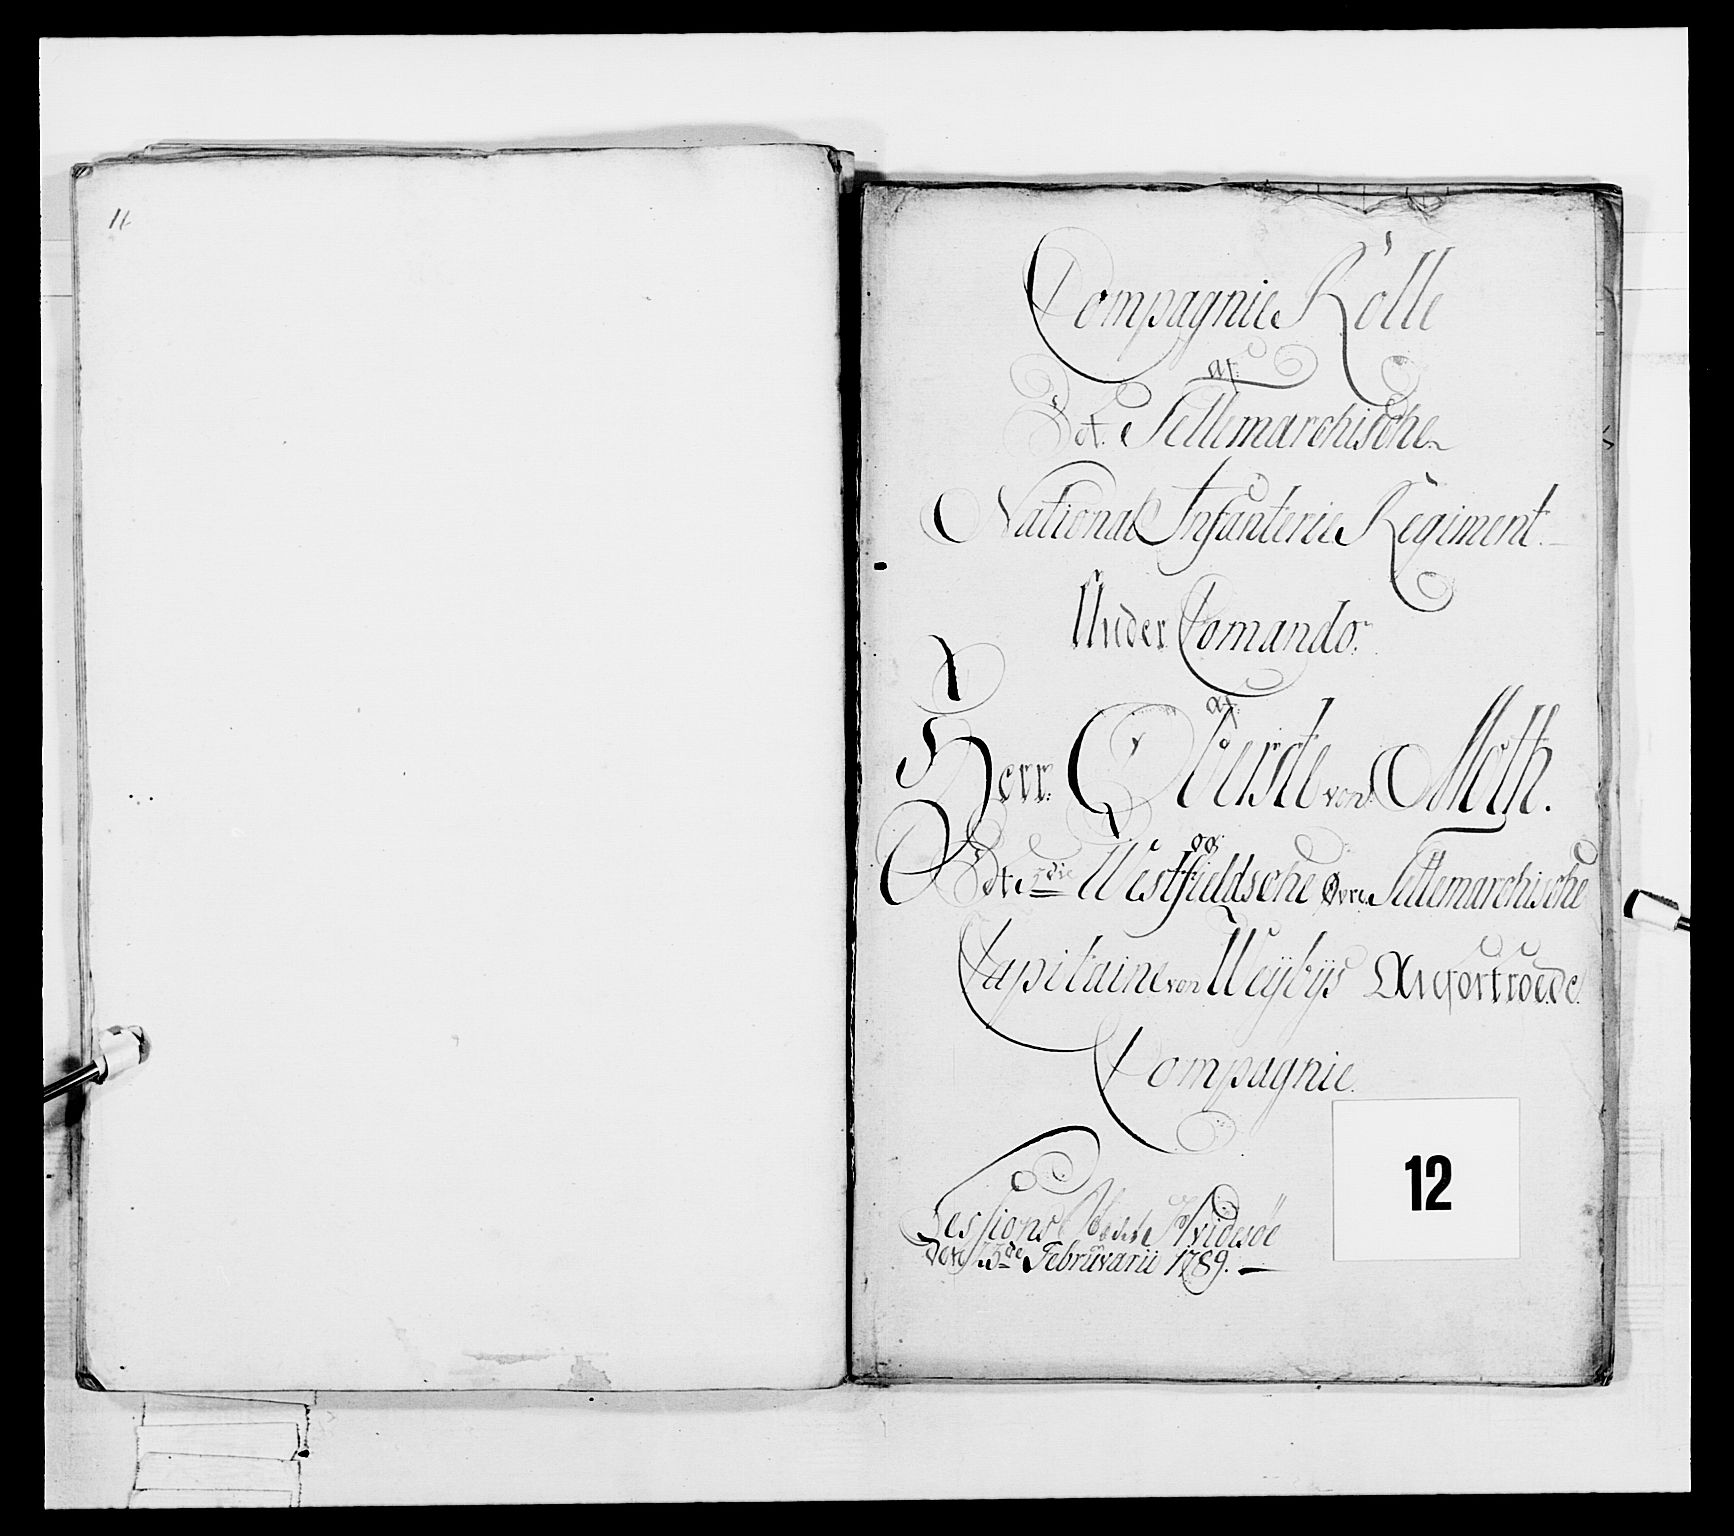 11
Compagnie Rolle
af
Det Tellemarchische
National Infanterie Regiment.
Under Comando.
af
Herr. Oberste von Moth.
og
Det 5die Westfieldsche Øvre Tellemarchische
Capitaine von Weybys Anfortroede
Compagnie.
12
Sessions Hvidesøe
den Februarii 1789.